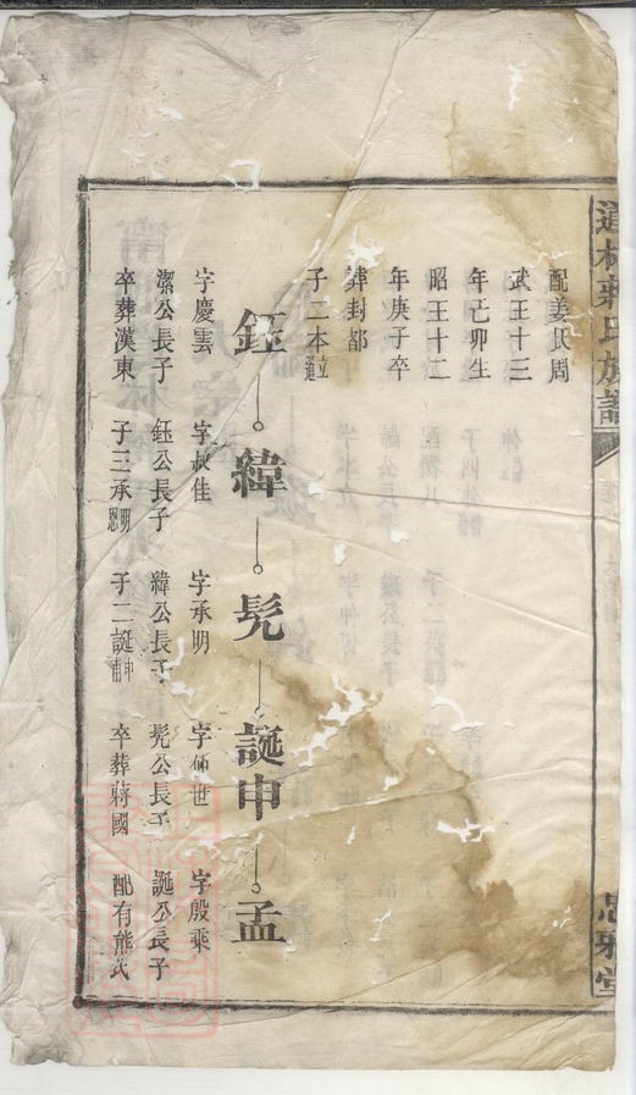 道林郭氏族譜
忠雅堂
配姜氏周
武王十三
年己卯生
昭王十二
年庚子卒
葬封都
子二本立道
鈺 緯 髡 誕申 孟
字慶雲 字叔佳 字承明 字仰世 字殷乘
潔公長子 鈺公長子 緯公長子 髡公長子 誕公長子
卒葬漢東 子三承明恩 子二誕申甫 卒葬蔣國 配有熊氏